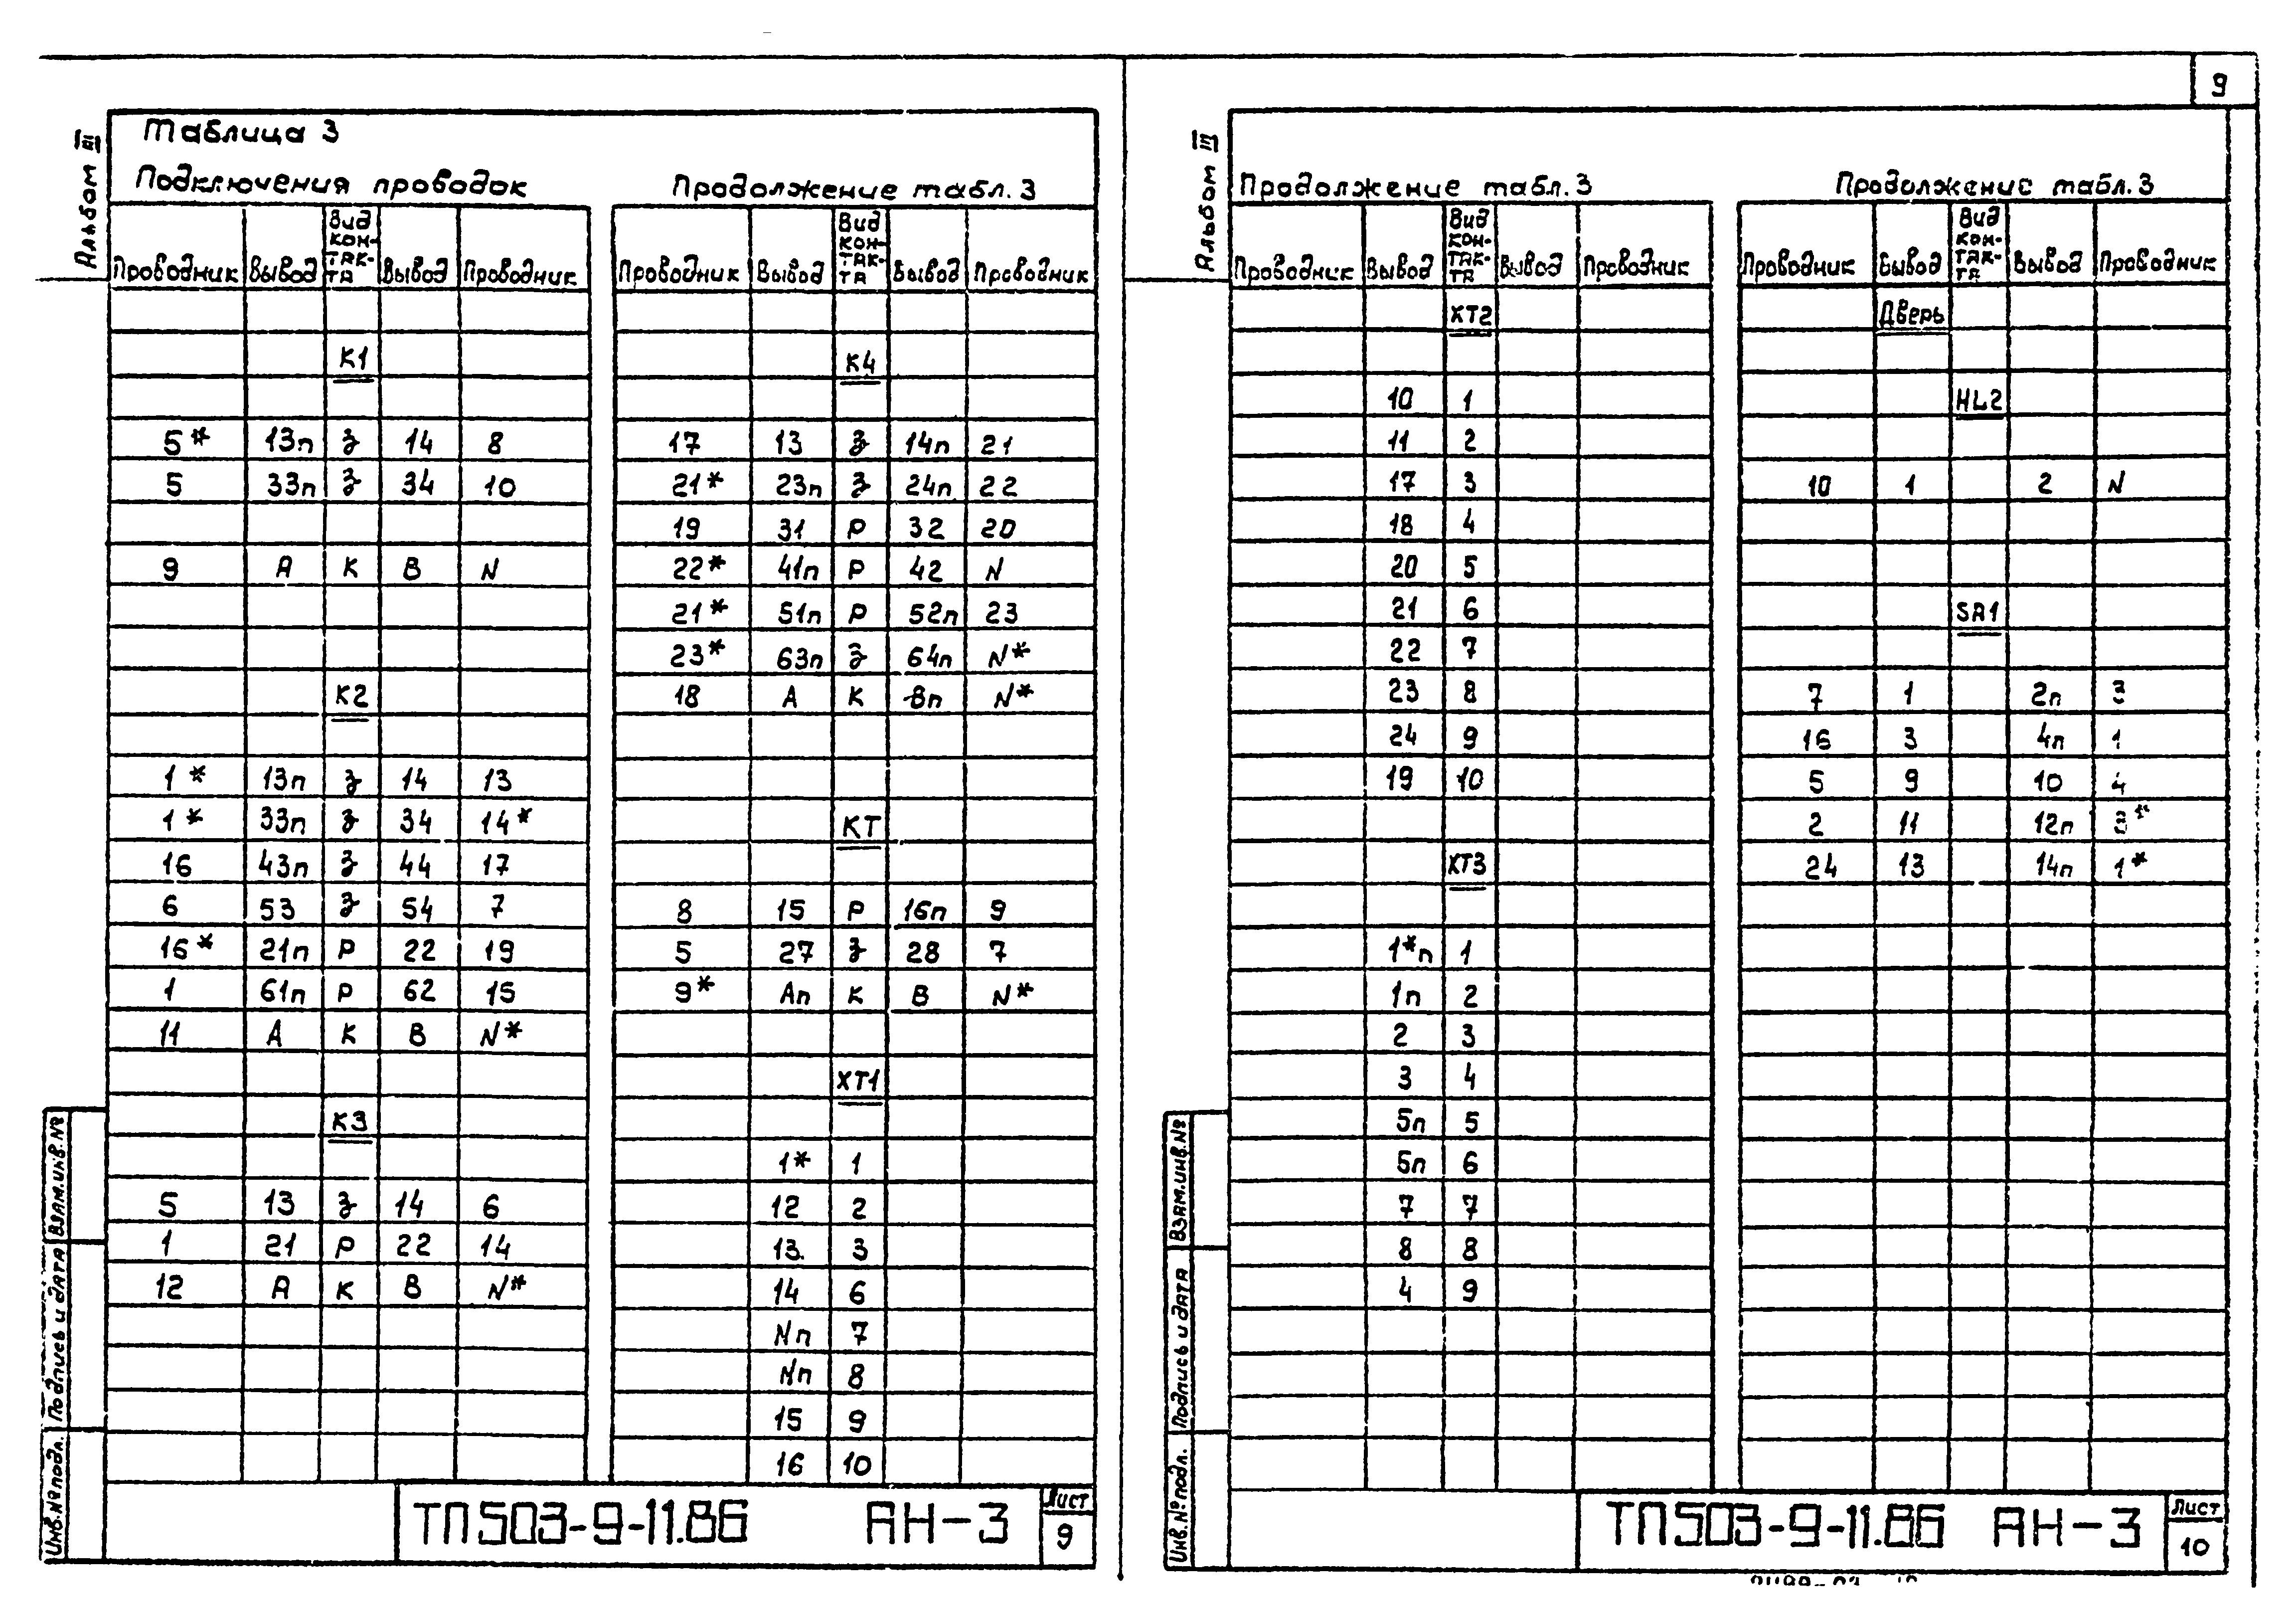 9
Альбом III
Таблица 3
Подключения проводок
Проводник Вывод Вид контакта Вывод Проводник
К1
5* 13п З 14 8
5 33п З 34 10
9 А К В N
К2
1* 13п З 14 13
1* 33п З 34 14*
16 43п З 44 17
6 53 З 54 7
16* 21п Р 22 19
1 61п Р 62 15
11 А К В N*
К3
5 13 З 14 6
1 21 Р 22 14
12 А К В N*
Продолжение табл. 3
Проводник Вывод Вид контакта Вывод Проводник
К4
17 13 З 14п 21
21* 23п З 24п 22
19 31 Р 32 20
22* 41п Р 42 N
21* 51п Р 52п 23
23* 63п З 64п N*
18 А К Вп N*
КТ
8 15 Р 16п 9
5 27 З 28 7
9* Ап К В N*
ХТ1
1* 1
12 2
13 3
14 6
Nп 7
Nп 8
15 9
16 10
Инв.№ подл. Подпись и дата Взам.инв.№
ТП503-9-11.86 АН-3
Лист
9
Альбом III
Продолжение табл. 3
Проводник Вывод Вид контакта Вывод Проводник
ХТ2
10 1
11 2
17 3
18 4
20 5
21 6
22 7
23 8
24 9
19 10
ХТ3
1*п 1
1п 2
2 3
3 4
5п 5
5п 6
7 7
8 8
4 9
Продолжение табл. 3
Проводник Вывод Вид контакта Вывод Проводник
Дверь
HL2
10 1 2 N
SA1
7 1 2п 3
16 3 4п 1
5 9 10 4
2 11 12п 3*
24 13 14п 1*
Инв.№ подл. Подпись и дата Взам.инв.№
ТП503-9-11.86 АН-3
Лист
10